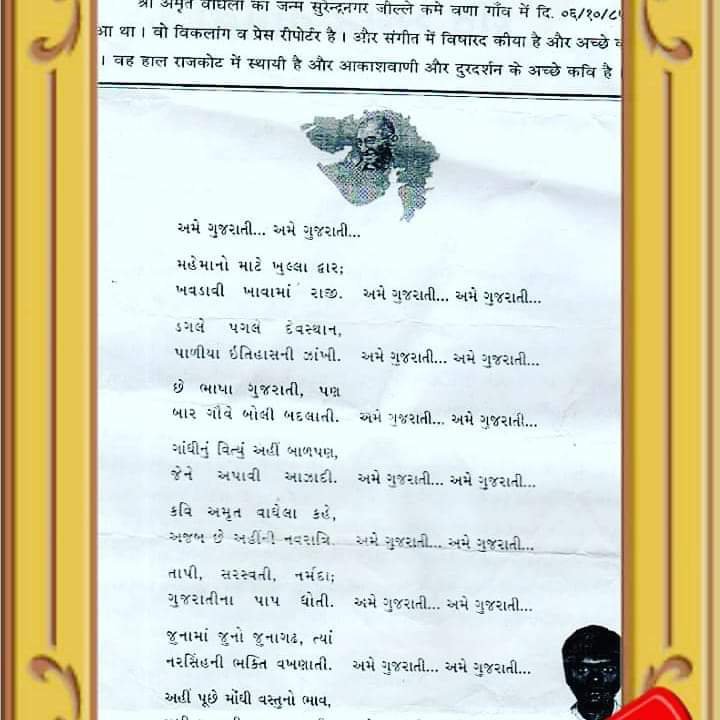 श्री अमृत वाघेला का जन्म सुरेन्द्रनगर जील्ले कमे वणा गाँव में दि. ०६/१०/८
आ था । वो विकलांग व प्रेस रीपोर्टर है । और संगीत में विषारद कीया है और अच्छे
। वह हाल राजकोट में स्थायी है और आकाशवाणी और दुरदर्शन के अच्छे कवि है
અમે ગુજરાતી... અમે ગુજરાતી...
મહેમાનો માટે ખુલ્લા દ્વાર;
ખવડાવી ખાવામાં રાજી. અમે ગુજરાતી... અમે ગુજરાતી...
ડગલે પગલે દેવસ્થાન,
પાળીયા ઇતિહાસની ઝાંખી. અમે ગુજરાતી... અમે ગુજરાતી...
છે ભાષા ગુજરાતી, પણ
બાર ગૌવે બોલી બદલાતી. અમે ગુજરાતી... અમે ગુજરાતી...
ગાંધીનું વિત્યું અહીં બાળપણ,
જેને અપાવી આઝાદી. અમે ગુજરાતી... અમે ગુજરાતી...
કવિ અમૃત વાઘેલા કહે,
અજબ છે અહીંની નવરાત્રિ. અમે ગુજરાતી... અમે ગુજરાતી...
તાપી, સરસ્વતી, નર્મદા;
ગુજરાતીના પાપ ધોતી. અમે ગુજરાતી... અમે ગુજરાતી...
જુનામાં જુનો જુનાગઢ, ત્યાં
નરસિંહની ભક્તિ વખણાતી. અમે ગુજરાતી... અમે ગુજરાતી...
અહીં પૂછે મોંઘી વસ્તુનો ભાવ,